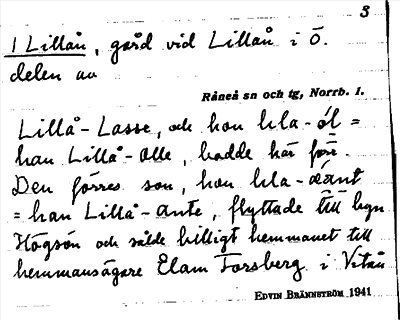 3
1 Lillån, gård vid Lillån i Ö.
delen av
Råneå sn och tg, Norrb. l.
Lillå-Lasse, och hon lıla-ól =
han Lillå-Olle, bodde här förr.
Den förres son, hon lıla-ánt
= han Lillå-Ante, flyttade till byn
Högsön och sålde billigt hemmanet till
hemmansägare Elam Forsberg i Vitån
EDVIN BRÄNNSTRÖM 1941